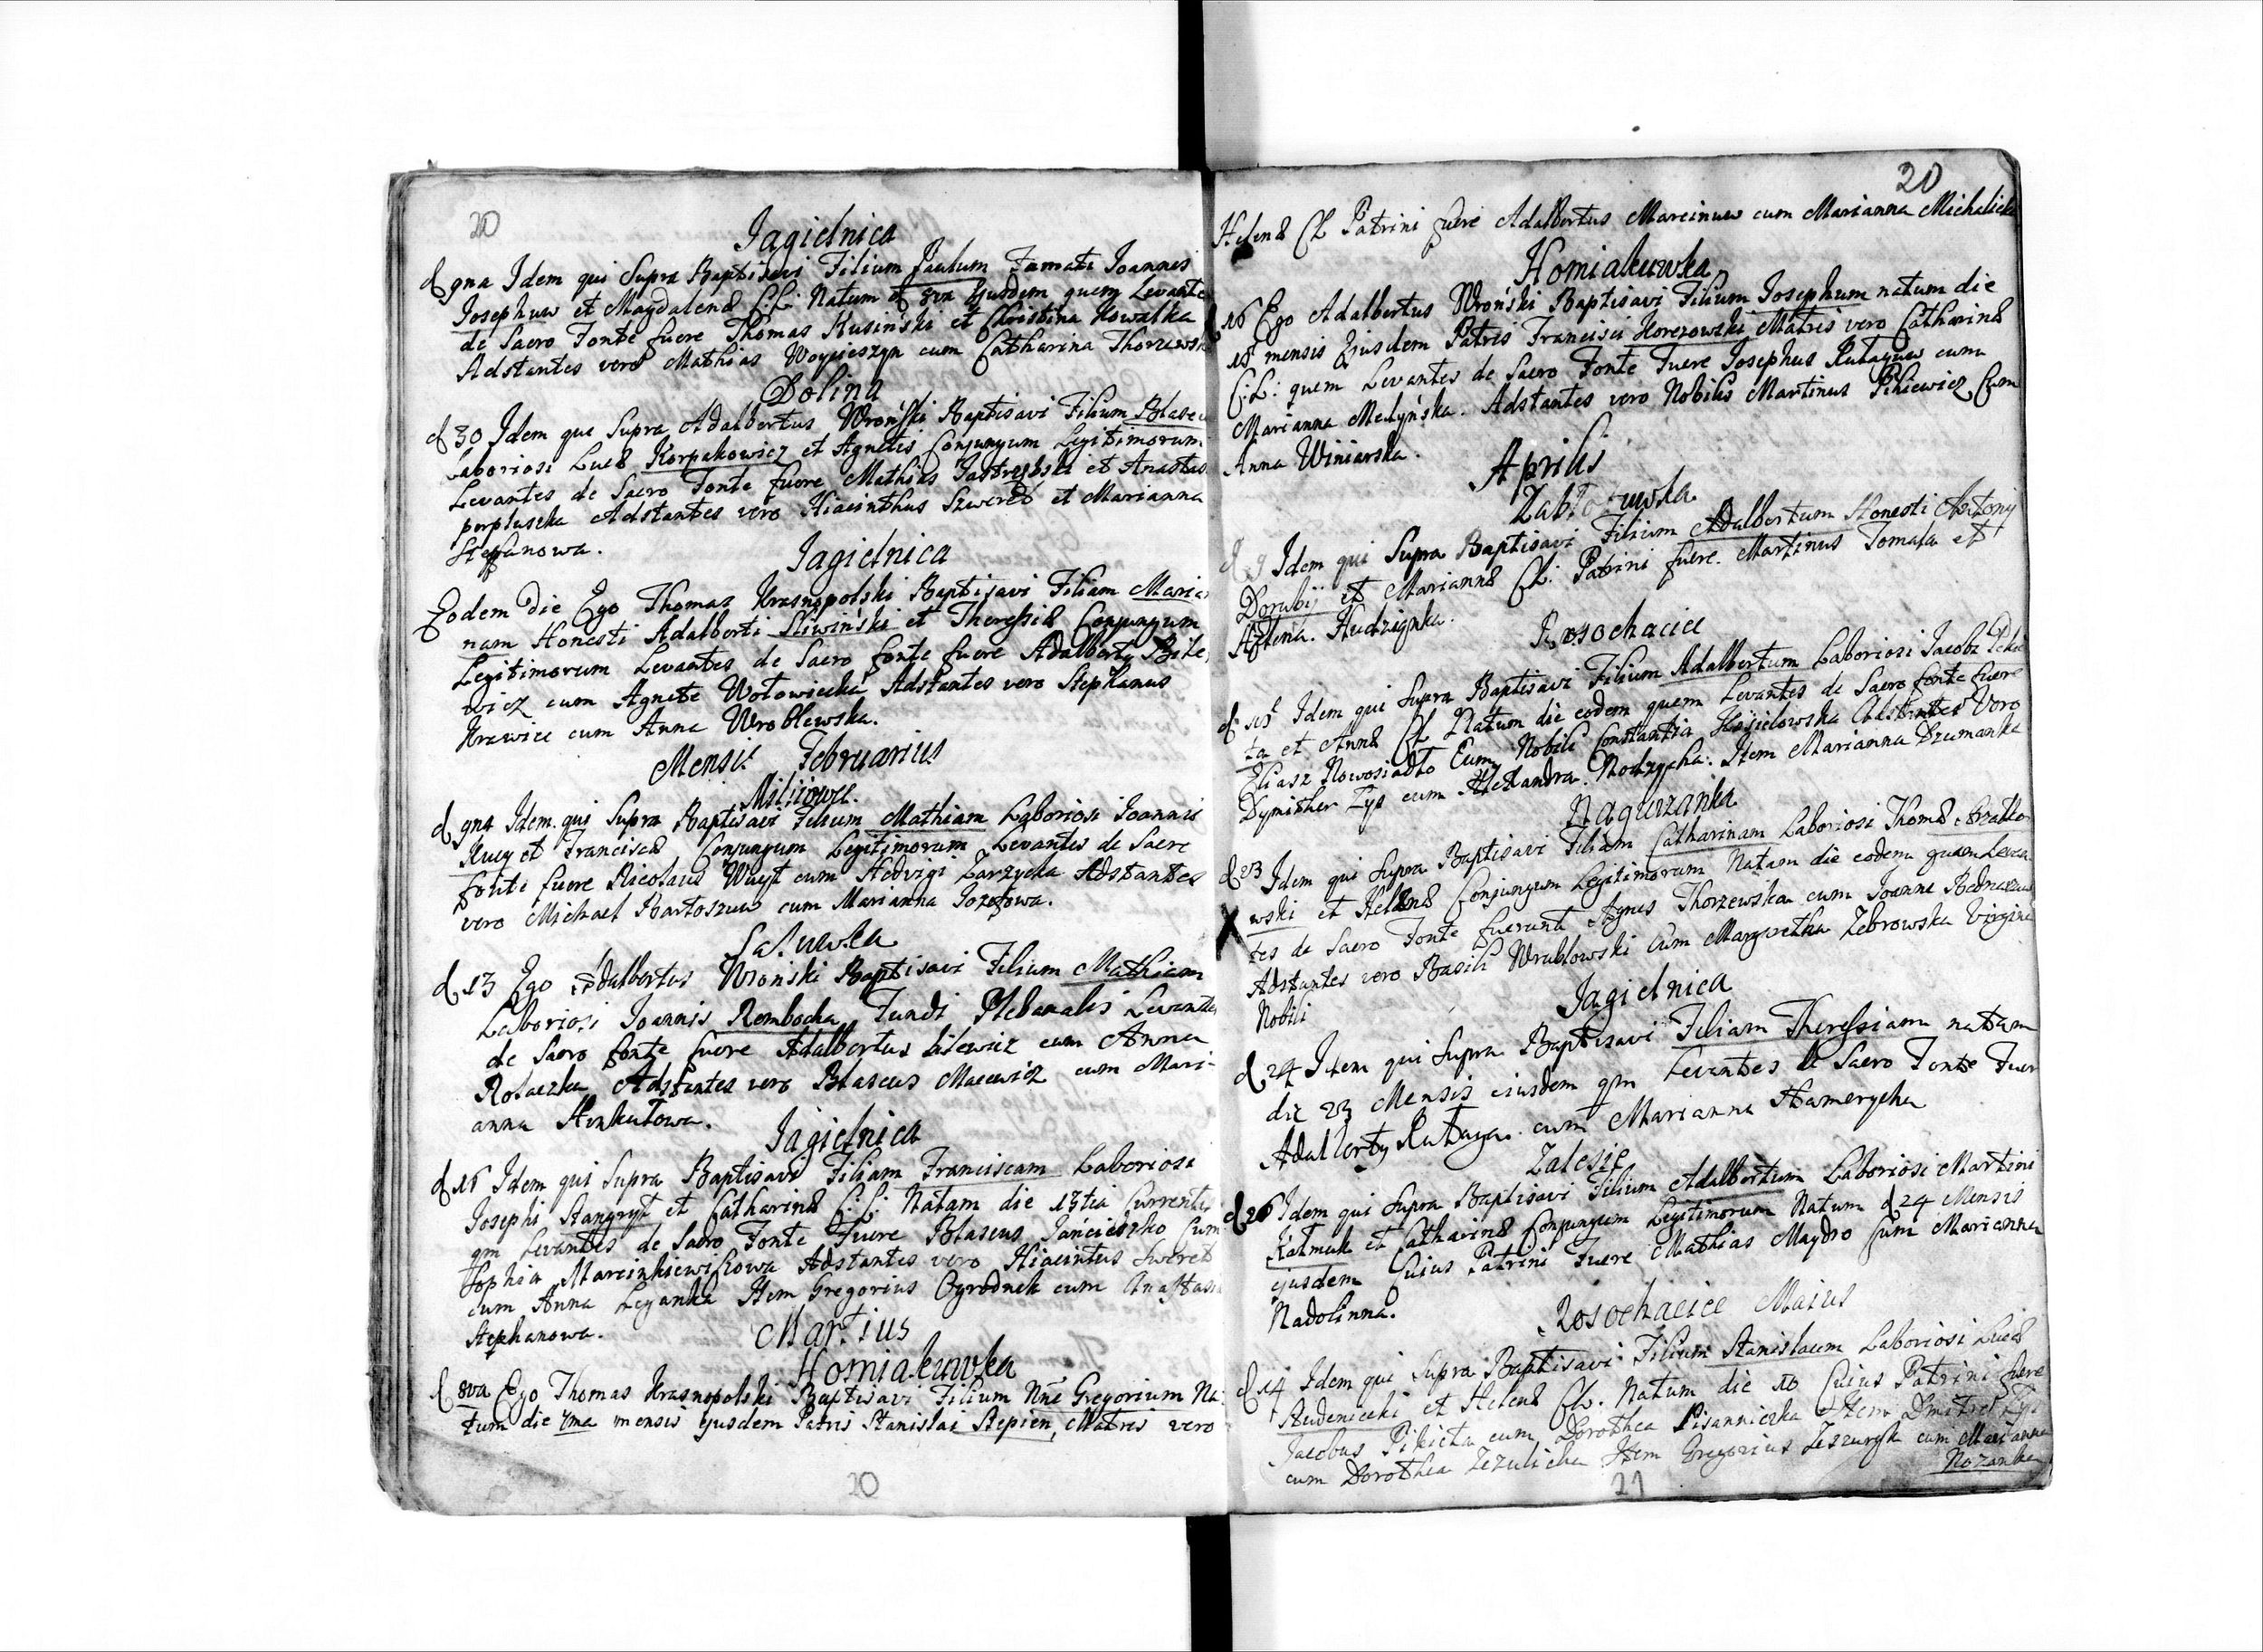 20
Jagielnica
d 9na Idem qui Supra Baptisavi Filium Paulum Famati Joannis
Josephuw et Magdalenæ C:L: Natum d 8va Ejusdem quem Levante
de Sacro Fonte fuere Thomas Kusiński et Christina Kowalka
Adstantes vero Mathias Woycieszyn cum Catharina Thorzewsk
Dolina
d 30 Idem qui Supra Adalbertus Wroński Baptisavi Filium Blaseu
Laboriosi Lucæ Korpakowicz et Agnetis Conjungum Legitimorum
Levantes de Sacro Fonte fuere Mathias Jastrzębski et Anastas
perpluszka Adstantes vero Hiacinthus Szwered et Marianna
Steffanowa.
Jagielnica
Eodem Die Ego Thomas Krasnopolski Baptisavi Filiam Maria
nam Honesti Adalberti Sliwiński et Theressiæ Conjungum
Legitimorum Levantes de Sacro fonte fuere Adalberty Bile
wicz cum Agnete Wołowiecka Adstantes vero Stephanus
Krawiec cum Anna Wroblewska.
Mensis Februarius
Miliowce.
d 9na Idem qui Supra Baptisavi Filium Mathiam Laboriosi Joannis
Kucy et Franciscæ Conjungum Legitimorum Levantes de Sacro
fonte fuere Nicolaus Wuyt cum Hedvigi Zarzycka Adstantes
vero Michael Bartoszuw cum Marianna Jozefowa.
Sałuwka
d 13 Ego Adalbertus Wroński Baptisavi Filium Mathiam
Laboriosi Joannis Rembocha Fundi Plebanalis Levantes
de Sacro fonte fuere Adalbertus Bilewicz cum Anna
Rolaczka Adstantes vero Blaseus Macewicz cum Mari-
anna Hinkułowa.
Jagielnica
d 15 Idem qui Supra Baptisavi Filiam Franciscam Laboriosi
Josephi Hangryt et Catharinæ C:L: Natam die 13tia Currentis
qm Levantes de Sacro Fonte Fuere Blaseus Jańcieszko Cum
Sophia Marcinkiewiczowa Adstantes vero Hiacintus Sweret
cum Anna Leyanka Item Gregorius Ogrodnik cum Anastasia
Stephanowa.
Martius
Homiakuwka
d 8va Ego Thomas Krasnopolski Baptisavi Filium Nne Gregorium Na
tum die 7ma mensis ejusdem Patris Stanislai Stepien, Matris vero
20
20
Helenæ CL Patrini fuere Adalbertus Marcinuw cum Marianna Michalicka
Homiakuwka
d 16 Ego Adalbertus Wroński Baptisavi Filium Josephum natum die
15 mensis Ejusdem Patris Francisci Korczowski Matris vero Catharinæ
C:L: quem Levantes de Sacro Fonte Fuere Josephus Rutaguw cum
Marianna Medyńska. Adstantes vero Nobilis Martinus Pikiewicz Cum
Anna Winiarska.
Aprilis
d 9 Idem qui Supra Baptisavi Filium Adalbertum Honesti Antonij
Dorubij et Mariannæ CL: Patrini fuere. Martinus Tomala et
Hudzianka.
Rosochacice
d 15 Idem qui Supra Baptisavi Filium Adalbertum Laboriosi Jacobi
ta et Annæ CL Natum die eodem quem Levantes de Sacro fonte fuere
Eliasz Nowosiadło Cum Nobili Constantia Adstantes Vero
Dymither Lys cum Alexandra Nodzycha. Item Marianna Dzumanka
Naguzanka
d 23 Idem qui Supra Baptisavi Filiam Catharinam Laboriosi Thomæ
wski et Helenæ Conjungum Legitimorum Natam die eodem quam Levan
X tes de Sacro Fonte fuerunt Agnes Thorzewska cum Joanne
Adstantes vero Basili Wrublowski Cum Margaretha Zebrowska Virgine
Nobili
Jagielnica
d 24 Idem qui Supra Baptisavi Filiam Theressiam natam
die 23 Mensis eiusdem qm Levantes de Sacro Fonte Fuer
Adalberty Rutaga cum Marianna Hamerycha
Zalesie
d 26 Idem qui Supra Baptisavi Filium Adalbertum Laboriosi Martini
Katmuk et Catharinæ Conjungum Legitimorum Natum d 24 Mensis
ejusdem Cuius Patrini Fuere Mathias Maydro Cum Marianna
Nadolinna.
Rosochacice Maius
d 14 Idem qui Supra Baptisavi Filium Stanislaum Laboriosi Lucæ
Audenicki et Helenæ CL. Natum die 10 Cuius Patrini fuere
Jacobus Pikieta cum Dorothea Pisanniczka Item Dmitro Lys
cum Dorothea Zezulicka Item Gregorius Leszuryk cum Marianna
Nozanka
21